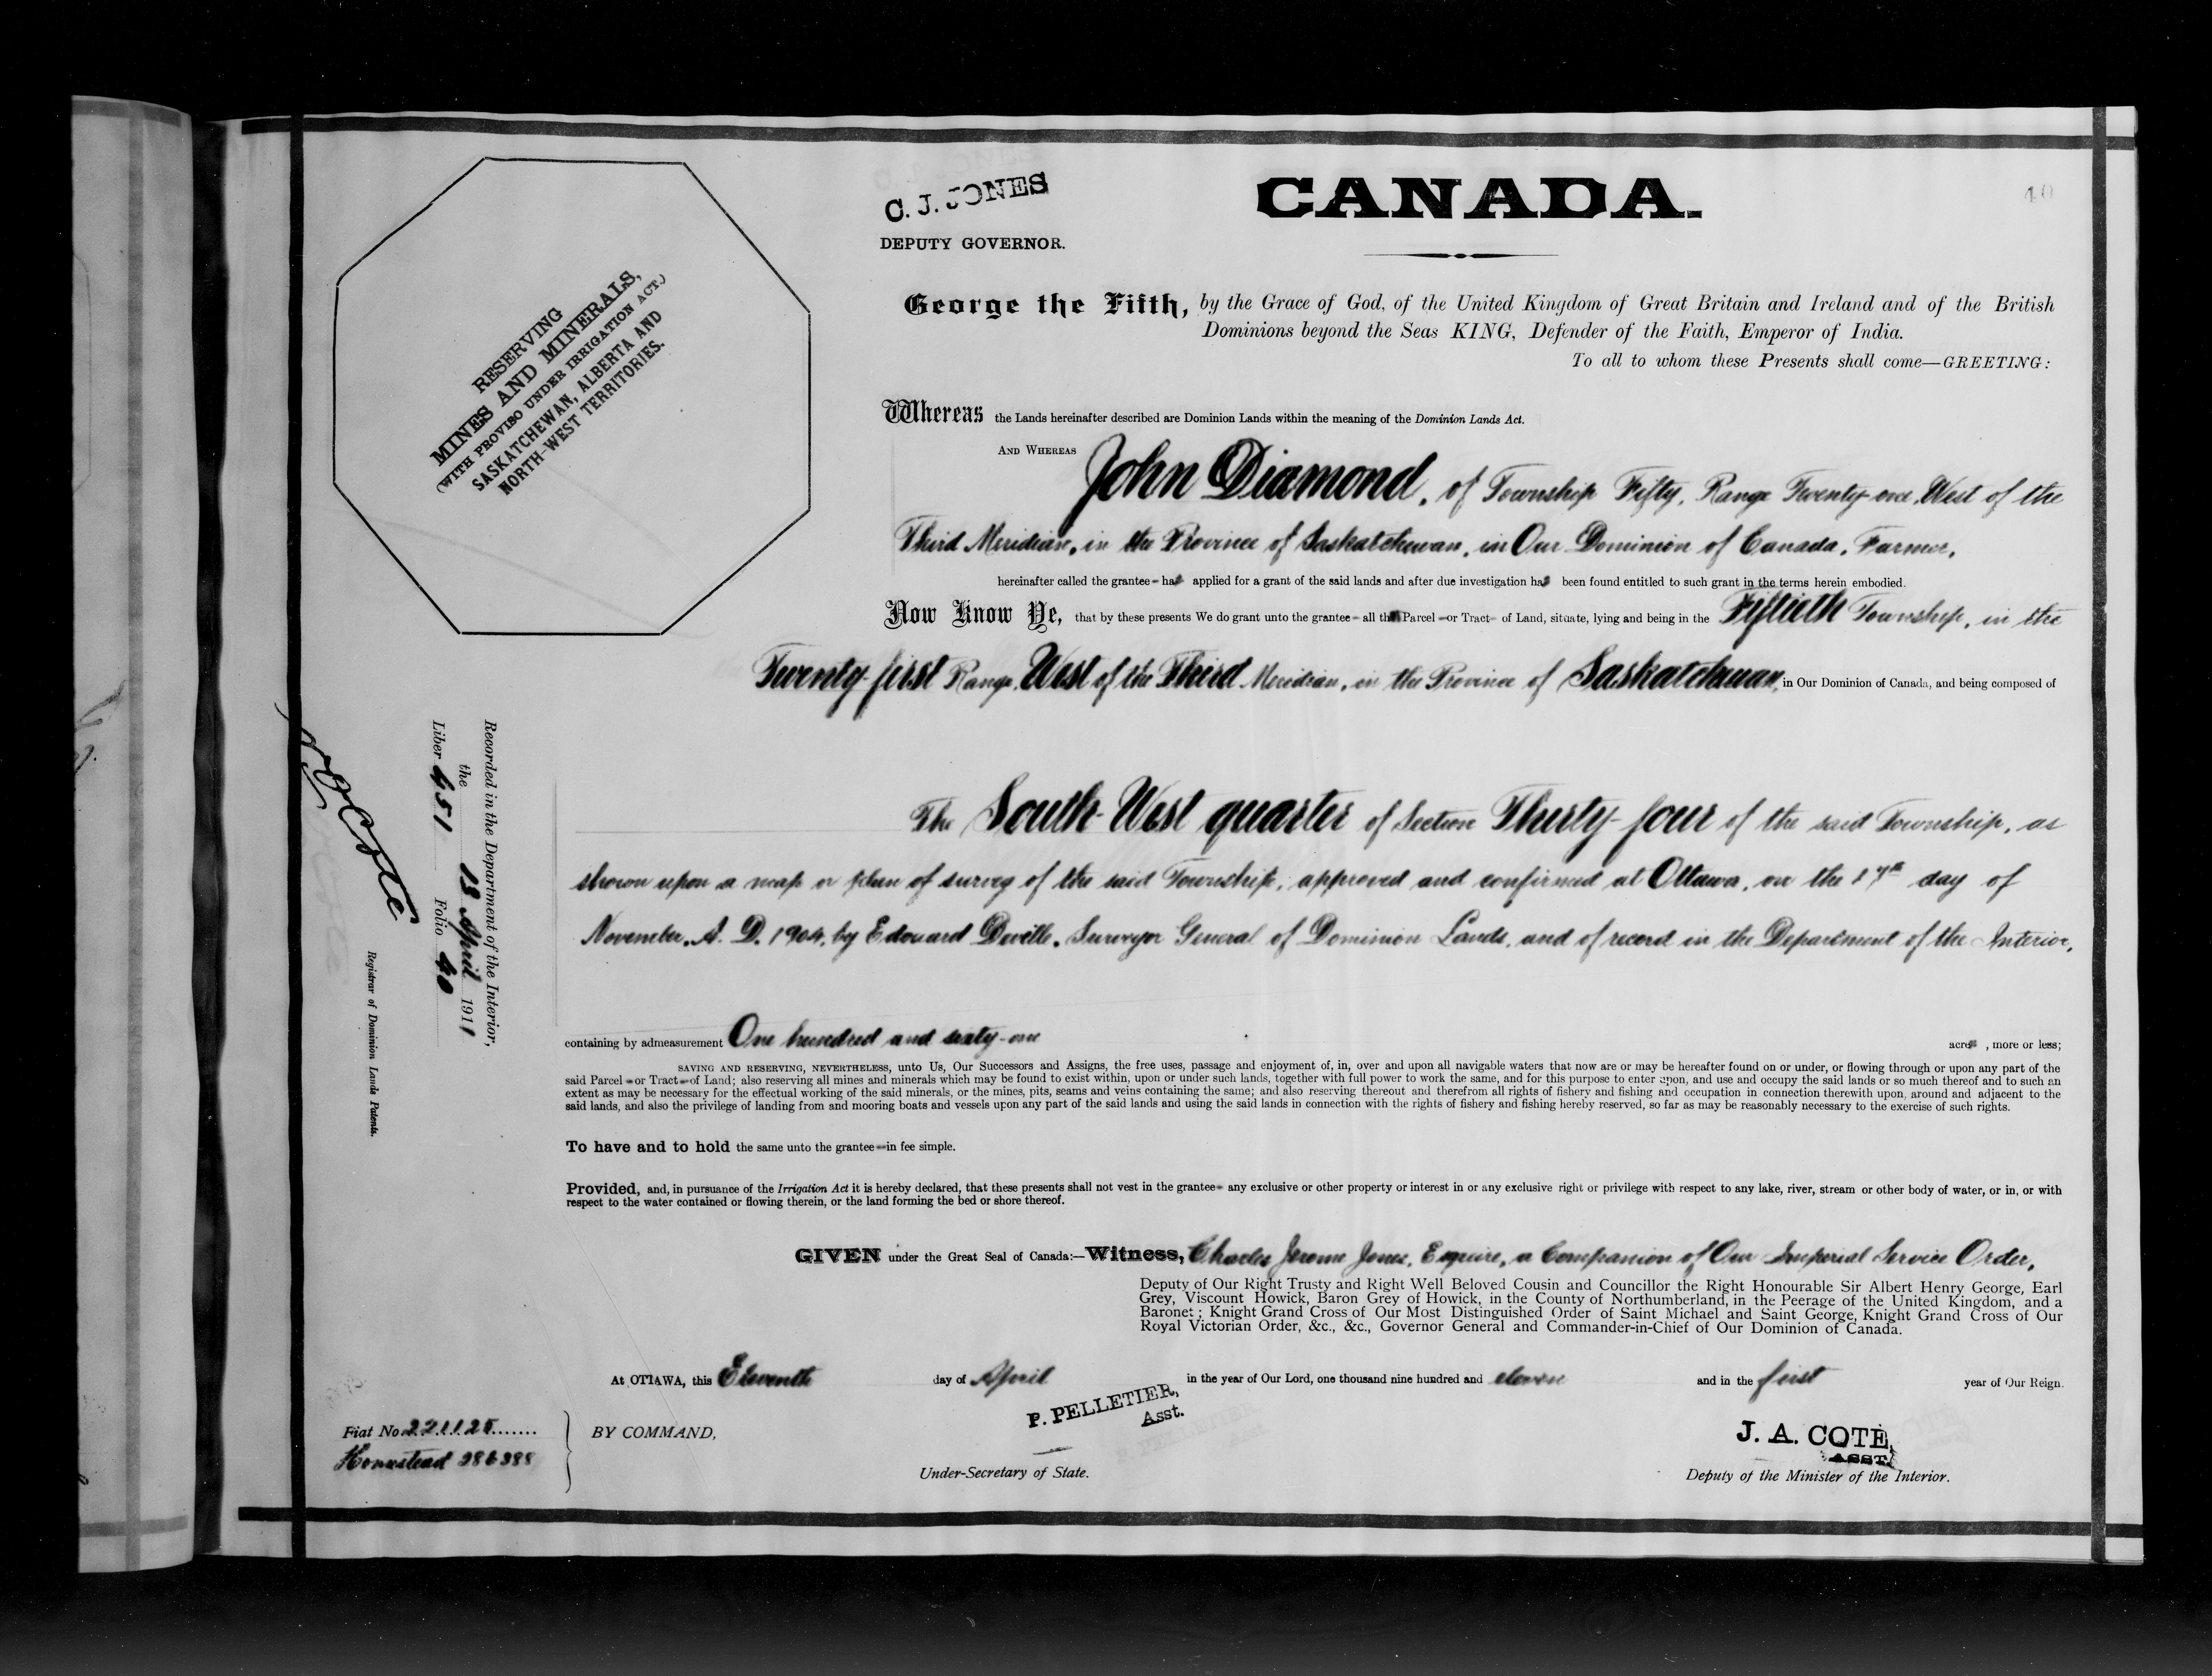 C. J. JONES
DEPUTY GOVERNOR.
CANADA.
40
RESERVING
MINES AND MINERALS,
(WITH PROVISO UNDER IRRIGATION ACT,)
SASKATCHEWAN, ALBERTA AND
NORTH-WEST TERRITORIES.
George the Fifth, by the Grace of God, of the United Kingdom of Great Britain and Ireland and of the British
Dominions beyond the Seas KING, Defender of the Faith, Emperor of India.
To all to whom these Presents shall come—GREETING:
Whereas the Lands hereinafter described are Dominion Lands within the meaning of the Dominion Lands Act.
AND WHEREAS John Diamond, of Township Fifty, Range Twenty-one, West of the
Third Meridian, in the Province of Saskatchewan, in Our Dominion of Canada, Farmer,
hereinafter called the grantee has applied for a grant of the said lands and after due investigation has been found entitled to such grant in the terms herein embodied.
Now Know Ye, that by these presents We do grant unto the grantee all that Parcel or Tract of Land, situate, lying and being in the Fiftieth Township, in the
Twenty-first Range, West of the Third Meridian, in the Province of Saskatchewan, in Our Dominion of Canada, and being composed of
The South-West quarter of Section Thirty-four of the said Township, as
shown upon a map or plan of survey of the said Township, approved and confirmed at Ottawa, on the 17th day of
November, A. D. 1904, by Edouard Deville, Surveyor General of Dominion Lands, and of record in the Department of the Interior,
containing by admeasurement One hundred and sixty-one acres, more or less;
SAVING AND RESERVING, NEVERTHELESS, unto Us, Our Successors and Assigns, the free uses, passage and enjoyment of, in, over and upon all navigable waters that now are or may be hereafter found on or under, or flowing through or upon any part of the
said Parcel or Tract of Land; also reserving all mines and minerals which may be found to exist within, upon or under such lands, together with full power to work the same, and for this purpose to enter upon, and use and occupy the said lands or so much thereof and to such an
extent as may be necessary for the effectual working of the said minerals, or the mines, pits, seams and veins containing the same; and also reserving thereout and therefrom all rights of fishery and fishing and occupation in connection therewith upon, around and adjacent to the
said lands, and also the privilege of landing from and mooring boats and vessels upon any part of the said lands and using the said lands in connection with the rights of fishery and fishing hereby reserved, so far as may be reasonably necessary to the exercise of such rights.
To have and to hold the same unto the grantee in fee simple.
Provided, and, in pursuance of the Irrigation Act it is hereby declared, that these presents shall not vest in the grantee any exclusive or other property or interest in or any exclusive right or privilege with respect to any lake, river, stream or other body of water, or in, or with
respect to the water contained or flowing therein, or the land forming the bed or shore thereof.
GIVEN under the Great Seal of Canada:—Witness, Charles Jerome Jones, Esquire, a Companion of Our Imperial Service Order,
Deputy of Our Right Trusty and Right Well Beloved Cousin and Councillor the Right Honourable Sir Albert Henry George, Earl
Grey, Viscount Howick, Baron Grey of Howick, in the County of Northumberland, in the Peerage of the United Kingdom, and a
Baronet; Knight Grand Cross of Our Most Distinguished Order of Saint Michael and Saint George, Knight Grand Cross of Our
Royal Victorian Order, &c., &c., Governor General and Commander-in-Chief of Our Dominion of Canada.
At OTTAWA, this Eleventh day of April in the year of Our Lord, one thousand nine hundred and eleven and in the first year of Our Reign.
Fiat No 221125
Homestead 286388
BY COMMAND,
P. PELLETIER,
Asst.
Under-Secretary of State.
J. A. COTÉ,
ASST.
Deputy of the Minister of the Interior.
Recorded in the Department of the Interior,
the 18 April 1911
Liber 451 Folio 40
Coté
Registrar of Dominion Lands Patents.